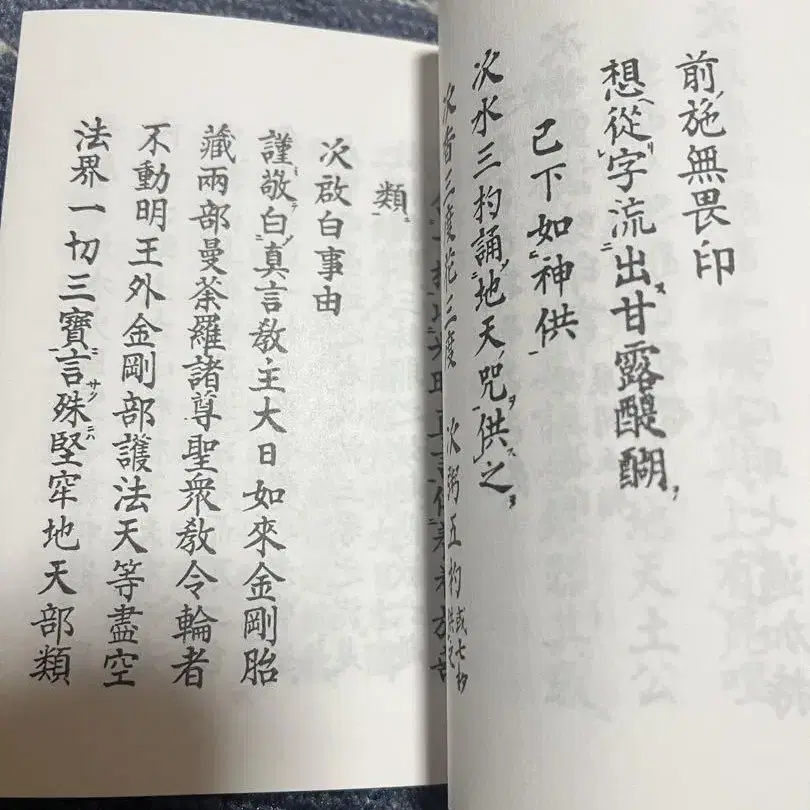 前施無畏印
想從字流出甘露醍醐
已下如神供
次水三杓誦地天呪供之
次香三度花三度 次粥五杓或七杓
類
次啟白事由
謹敬白真言教主大日如來金剛胎
藏兩部曼荼羅諸尊聖衆教令輪者
不動明王外金剛部護法天等盡空
法界一切三寶言殊堅牢地天部類